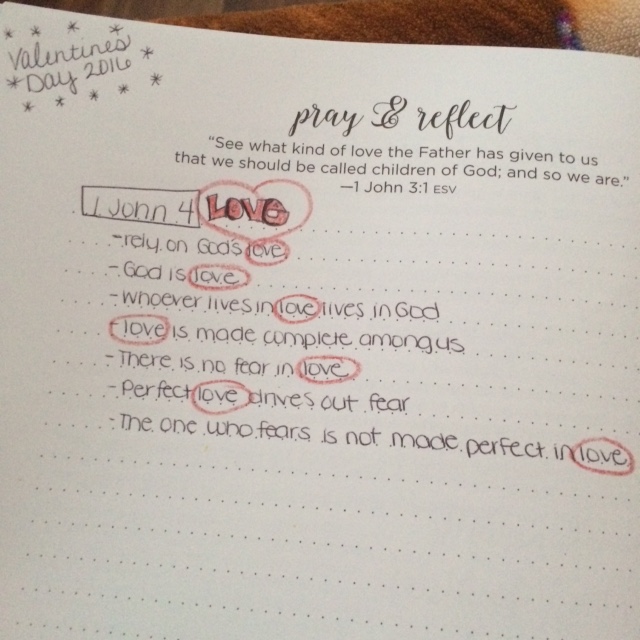 Valentines
Day 2016
pray & reflect
"See what kind of love the Father has given to us
that we should be called children of God; and so we are."
—1 John 3:1 ESV
1 John 4 LOVE
-rely on God's love
-God is love
-Whoever lives in love lives in God
-love is made complete among us
-There is no fear in love
-Perfect love drives out fear
-The one who fears is not made perfect in love